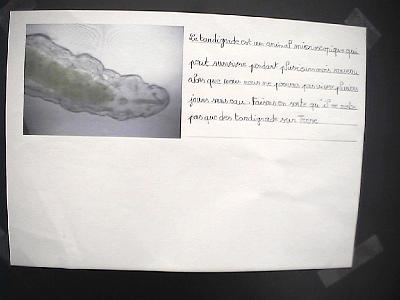 Le tardigrade est un animal microscopique qui
peut survivre pendant plusieurs mois
alors que nous nous ne pouvons pas vivre plusieurs
jours sans eau. Faisons en sorte qu'il ne reste
pas que des tardigrade sur Terre